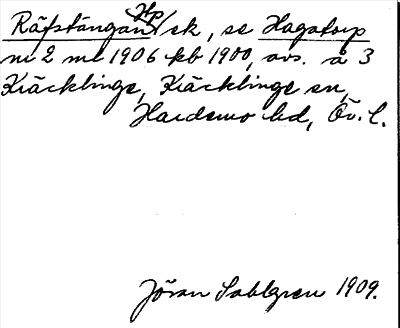 Räfstängan Hp/sk, se Hagatorp
nr 2 ml 1906 kb 1900, avs. å 3
Kräcklinge, Kräcklinge sn,
Hardemo hd, Öv. l.
Jöran Sahlgren 1909.